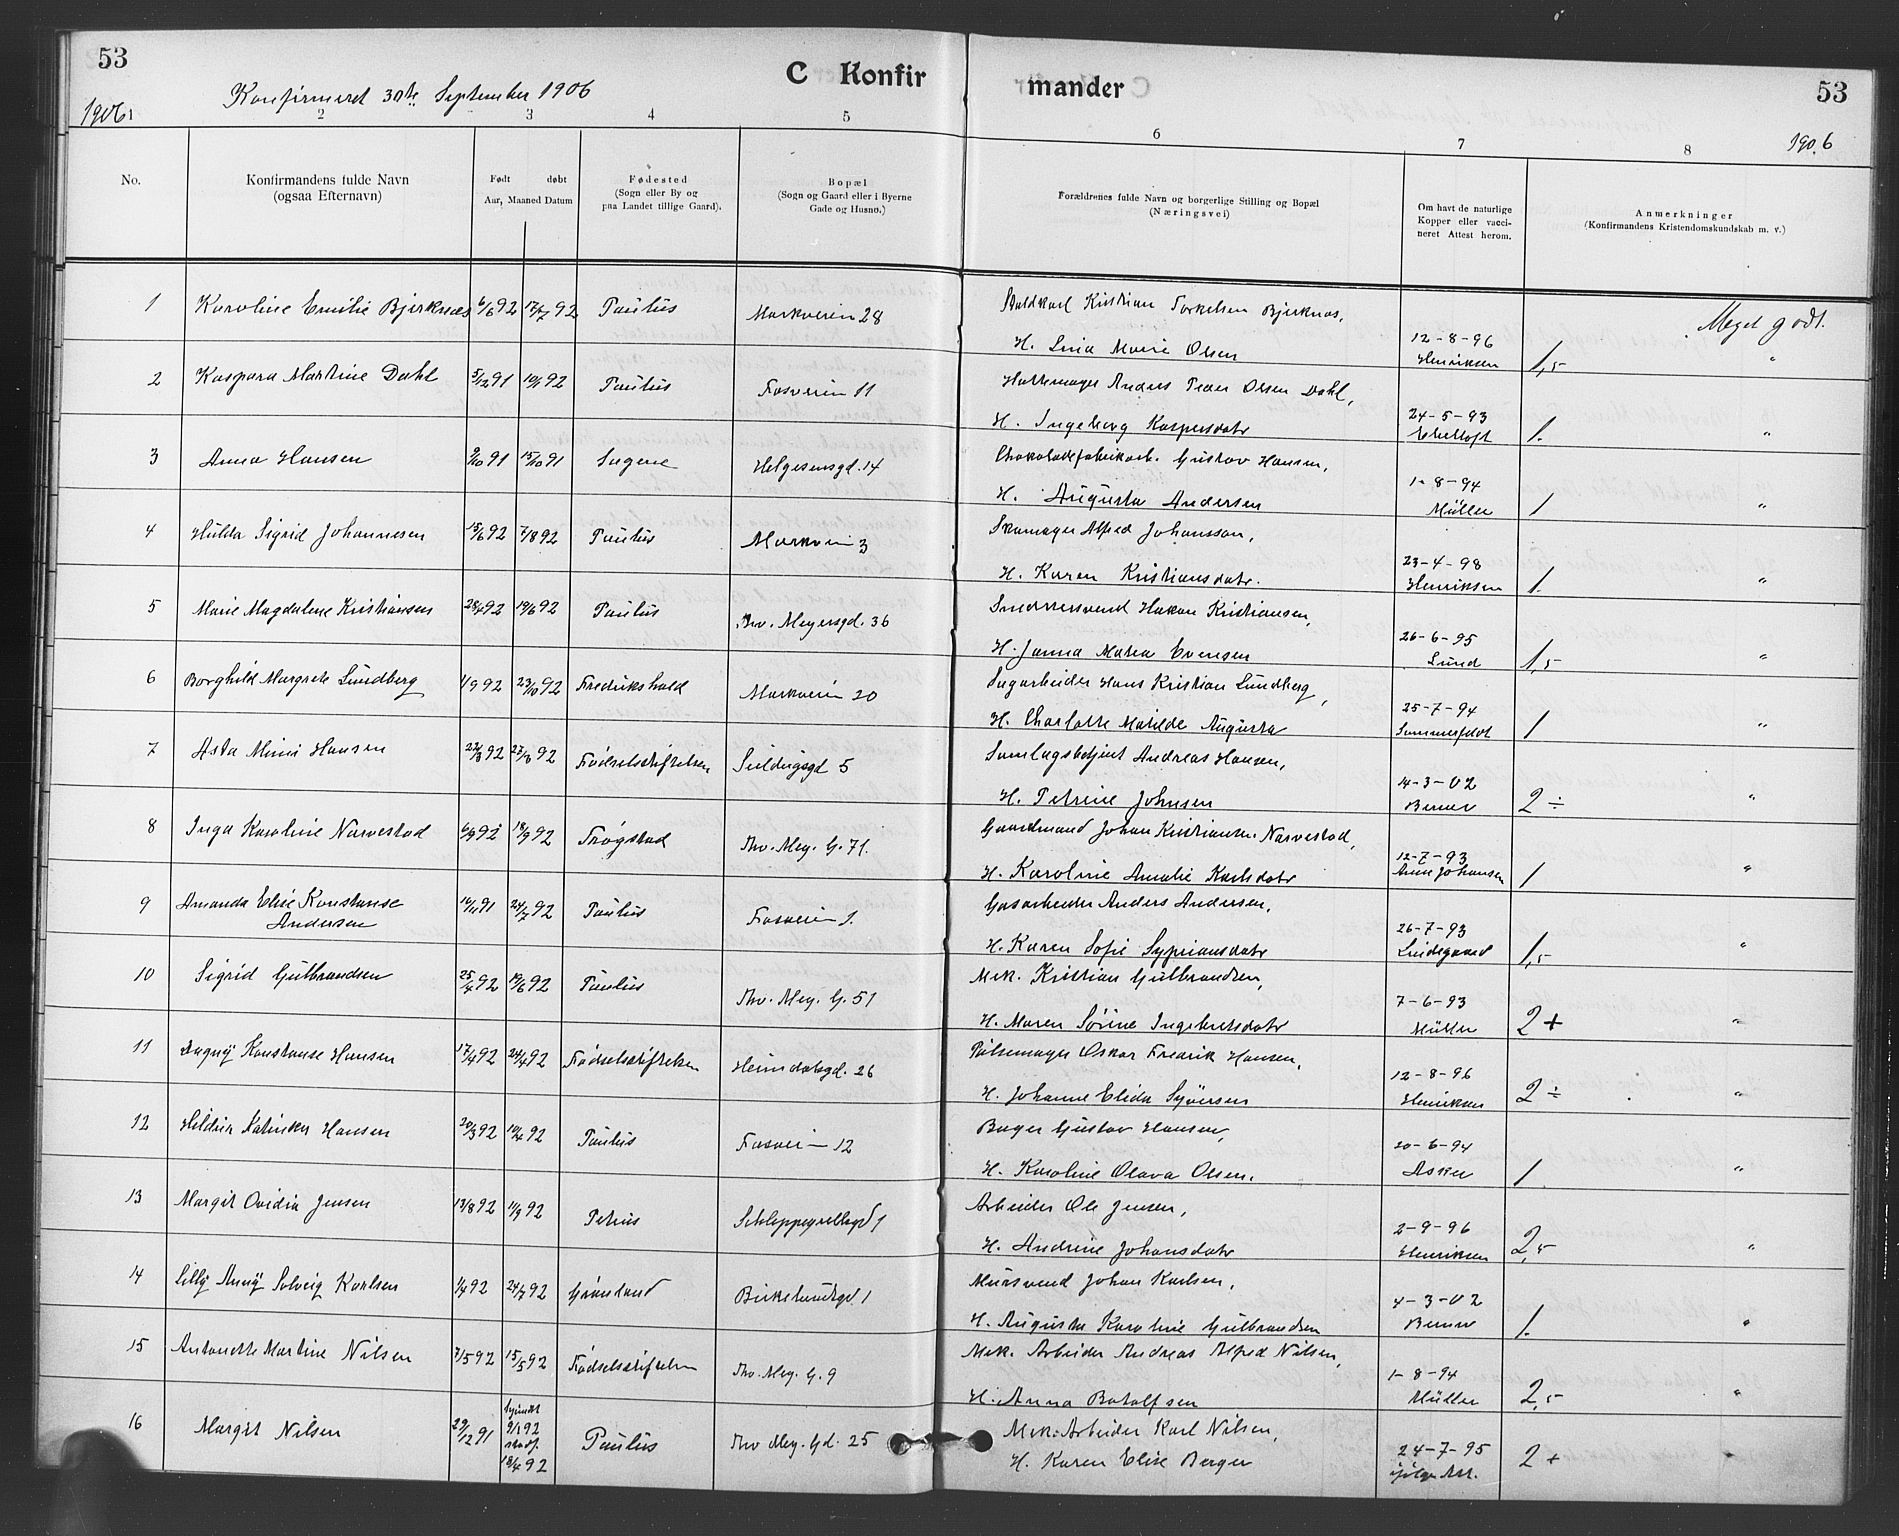 53
C Konfir
mander
53
Konfirmeret 30te September 1906
1906
1906
1 2 3 4 5 6 7 8
No.
Konfirmandens fulde Navn
(ogsaa Efternavn)
Født døbt
Aar, Maaned Datum
Fødested
(Sogn eller By og
paa Landet tillige Gaard).
Bopæl
(Sogn og Gaard eller i Byerne
Gade og Husno.)
Forældrenes fulde Navn og borgerlige Stilling og Bopæl
(Næringsvei)
Om havt de naturlige
Kopper eller vacci-
neret Attest herom.
Anmerkninger
(Konfirmandens Kristendomskundskab m. v.)
1 Karoline Emilie Bjerknæs 6/6 92 17/7 92 Paulus Markveien 28 Kristian Torkelsen Bjerknæs,
H. Lina Marie Olsen 12-8-96 Henriksen 1,5 Meget godt.
2 Kaspara Martine Dahl 5/12 91 10/1 92 Paulus Fosveien 11 Hattemager Anders Peder Olsen Dahl,
H. Ingeborg Kaspersdatr 24-5-93 1. "
3 Anna Hansen 9/10 91 15/10 91 Helgesensgd. 14 Chokoladefabrikarb. Gustav Hansen,
H. Augusta Andersen 1-8-94 Müller 1 "
4 Hulda Sigrid Johannesen 15/6 92 7/8 92 Paulus Markvein 3 Skomager Alfred Johansson,
H. Karen Kristiansdatr. 23-4-98 Henriksen 1. "
5 Marie Magdalene Kristiansen 28/4 92 19/6 92 Paulus Thv. Meyersgd. 36 Snedkersvend Hakon Kristiansen,
H. Janna Maria Evensen 26-6-95 Lund 1,5 "
6 Borghild Margrete Lundberg 1/9 92 23/10 92 Fredrikshald Markveien 20 Sagarbeider Hans Kristian Lundberg,
H. Charlotte Matilde Augusta 25-7-94 Sommerfeldt 1 "
7 Asta Mimi Hansen 22/8 92 27/8 92 Fødselsstiftelsen Seildugsgd 5 Samlagsbetjent Andreas Hansen,
H. Petrine Johnsen 14-3-02 Berner 2 ÷ "
8 Inga Karoline Narvestad 6/9 92 18/9 92 Trøgstad Thv. Mey. G. 71. Gaardmand Johan Kristiansen Narvestad,
H. Karoline Amalie Karlsdatr 12-7-93 Arne Johansen 1 "
9 Amanda Elise Konstanse
Andersen 14/11 91 24/7 92 Paulus Fosveien 1. Gasarbeider Anders Andersen,
H. Karen Sofie Sypriansdatr 26-7-93 Lindegaard 1,5 "
10 Sigrid Gulbrandsen 25/4 92 19/6 92 Paulus Thv. Mey. G. 51 Mek. Kristian Gulbrandsen,
H. Maren Sørine Ingebretsdatr 7-6-93 Müller 2 + "
11 Dagny Konstanse Hansen 17/4 92 24/4 92 Fødselsstiftelsen Heimdalsgd. 26 Pølsemager Oskar Fredrik Hansen,
H. Johanne Elida Syversen 12-8-96 Henriksen 2 ÷ "
12 Hildur Katinka Hansen 20/3 92 10/4 92 Paulus Fosvein 12 Bager Gustav Hansen,
H. Karoline Olava Olsen. 20-6-94 Asker 1 "
13 Margit Ovidia Jensen 13/8 92 11/9 92 Petrus Schleppegrellsgd 1 Arbeider Ole Jensen,
H. Andrine Johansdatr 2-9-96 Henriksen 2,5 "
14 Lilly Anny Solveig Karlsen 1/4 92 24/7 92 Grønland Birkelundsgd 1 Mursvend Johan Karlsen,
H. Augusta Karoline Gulbrandsen 4-3-02 Berner 1. "
15 Antonette Martine Nilsen 7/5 92 15/5 92 Fødselsstiftelsen Thv. Mey. G. 9 Mek. Arbeider Andreas Alfred Nilsen,
H. Anna Botolfsen 1-8-94 Müller 2,5 "
16 Margit Nilsen 29/12 91 hjemdt 9/1 92 stadf. 18/4 92 Paulus Thv Mey. Gd. 25 Mek. Arbeider Karl Nilsen,
H. Karen Elise Berger 24-7-95 ifølge Att. 2 +